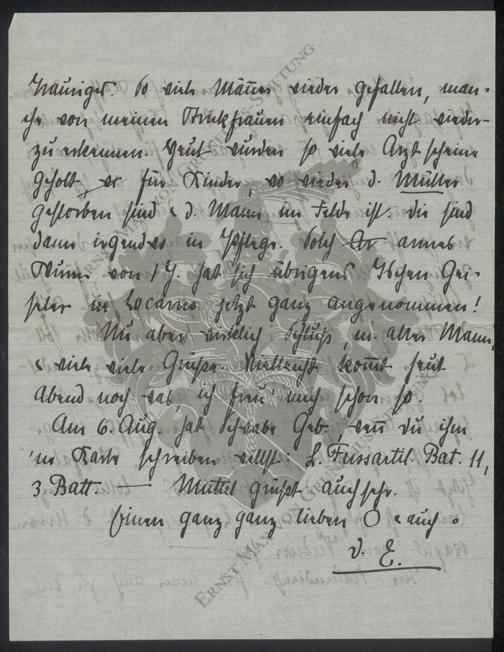 trauriger. So viele Männer wieder gefallen, man-
che von meinen Strickfrauen einfach nicht wieder-
zuerkennen. Heut wurden so viele Arztscheine
geholt, für Kinder, wo wieder d. Mutter
gestorben sind & d. Mann im Felde ist. die sind
dann irgendwo in Pflege. Solch armes
Wurm von 1 J. hat sich übrigens
in Locarno jetzt ganz angenommen!
Nu aber wirklich Schluss, m. alter Mann,
& viele viele Grüsse. Vielleicht kommt heut
Abend noch was, ich freu' mich schon so.
Am 6. Aug. hat Schwabe Geb. wenn du ihm
'ne Karte schreiben willst: L. Fussartil. Bat. 11,
3. Batt. — Muttel grüsst auch sehr.
Einen ganz ganz lieben O & auch o
d. E.
ERNST MAX
STIFTUNG